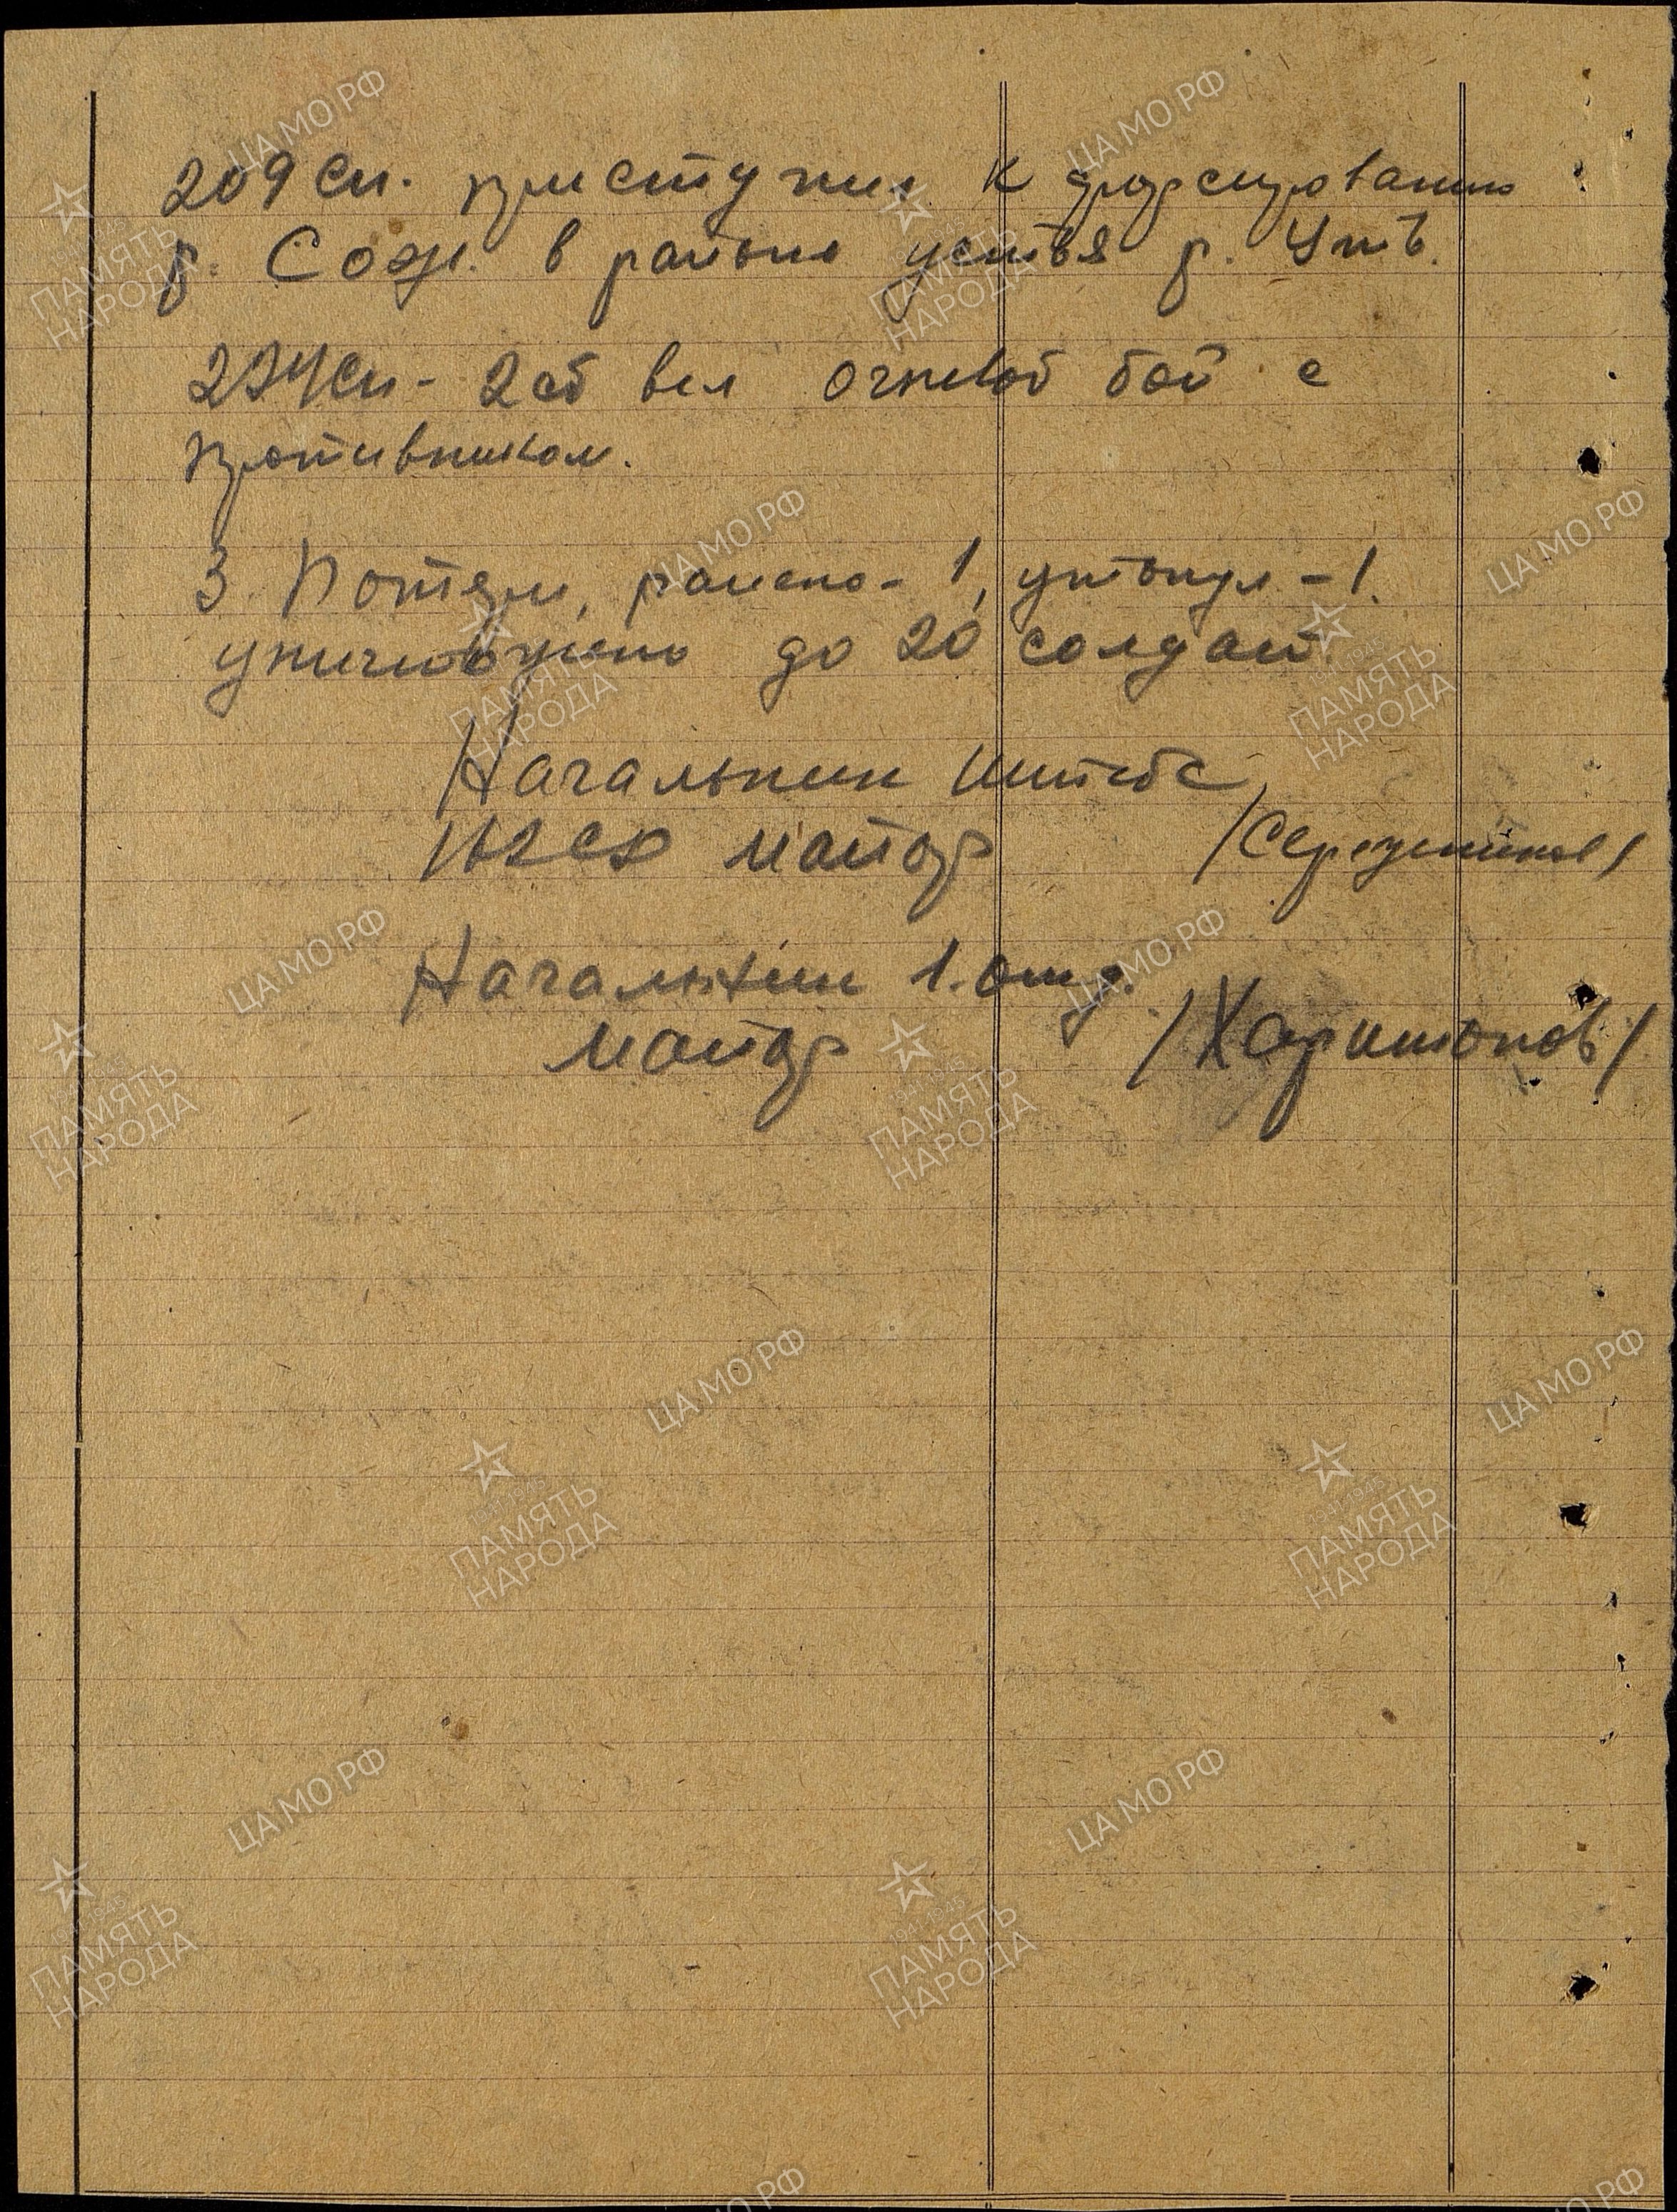 209 сп. приступил к форсированию
р. Сож. в районе устья р. Уть.
234 сп - 2 сб вел огневой бой с
противником.
3. Потери, ранено - 1, утонул - 1.
уничтожено до 20 солдат.
Начальник штаба
майор
Начальник 1. отд.
майор /Харитонов/